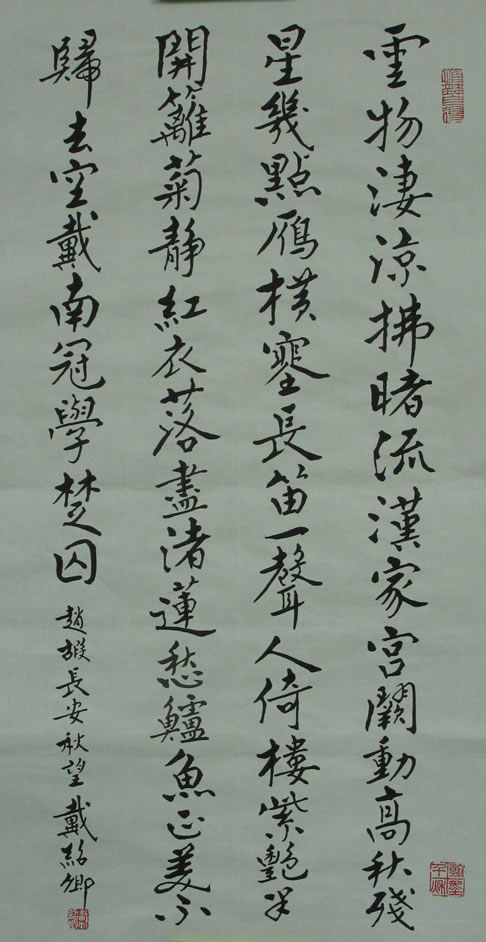 雲物淒涼拂曙流漢家宮闕動高秋殘
星幾點鴈橫塞長笛一聲人倚樓紫艷半
開籬菊靜紅衣落盡渚蓮愁鱸魚正美不
歸去空戴南冠學楚囚 趙嘏長安秋望 戴紹卿